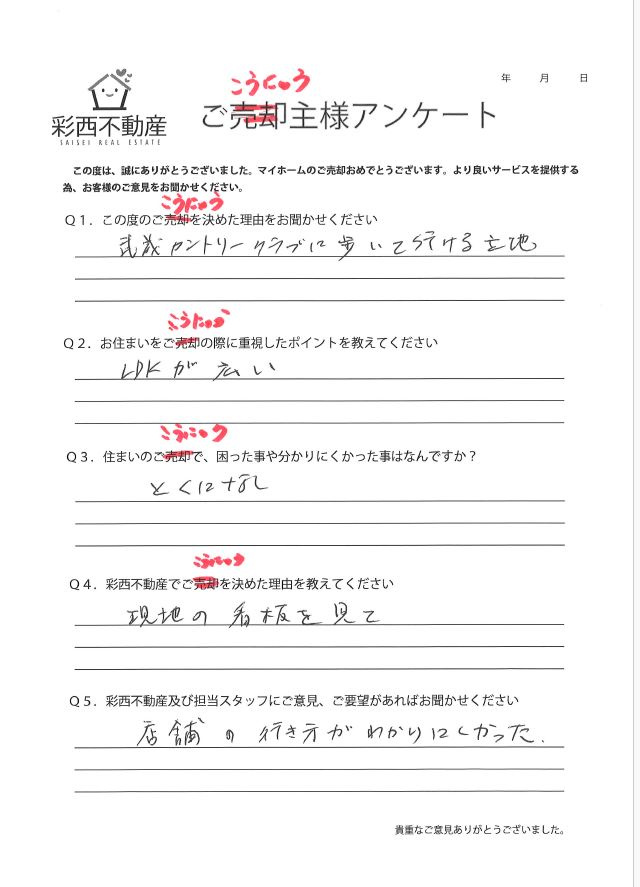 こうにゅう
年 月 日
彩西不動産
SAISEI REAL ESTATE
ご売却主様アンケート
この度は、誠にありがとうございました。マイホームのご売却おめでとうございます。より良いサービスを提供する
為、お客様のご意見をお聞かせください。
こうにゅう
Q1．この度のご売却を決めた理由をお聞かせください
武蔵カントリークラブに歩いて行ける立地
こうにゅう
Q2．お住まいをご売却の際に重視したポイントを教えてください
LDKが広い
こうにゅう
Q3．住まいのご売却で、困った事や分かりにくかった事はなんですか？
とくになし
こうにゅう
Q4．彩西不動産でご売却を決めた理由を教えてください
現地の看板を見て
Q5．彩西不動産及び担当スタッフにご意見、ご要望があればお聞かせください
店舗の行き方がわかりにくかった.
貴重なご意見ありがとうございました。